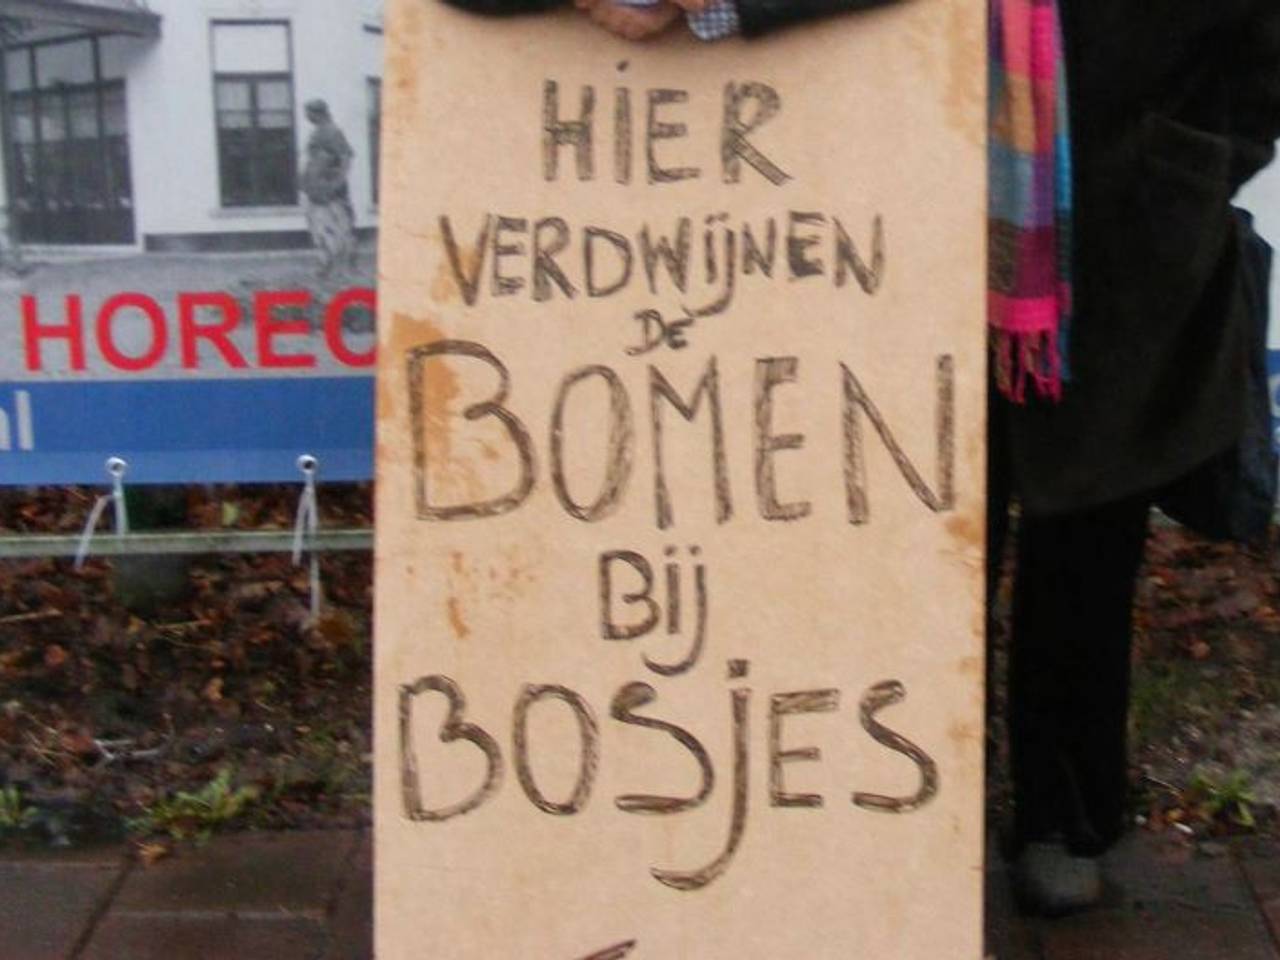 HIER
VERDWIJNEN
DE
BOMEN
BIJ
BOSJES
HOREC
nl